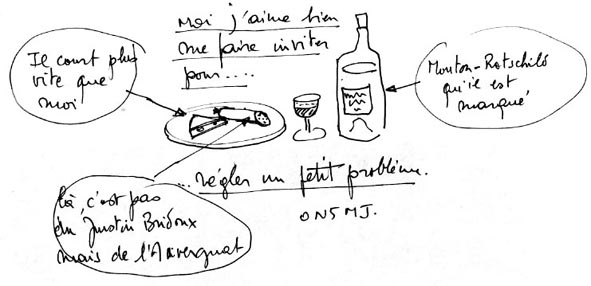 Moi j'aime bien
me faire inviter
pour....
Il court plus
vite que
moi
Mouton-Rotschild
qu'il est
marqué
... régler un petit problème.
là c'est pas
du Justin Bridoux
mais de l'Auvergnat
ON5MJ.